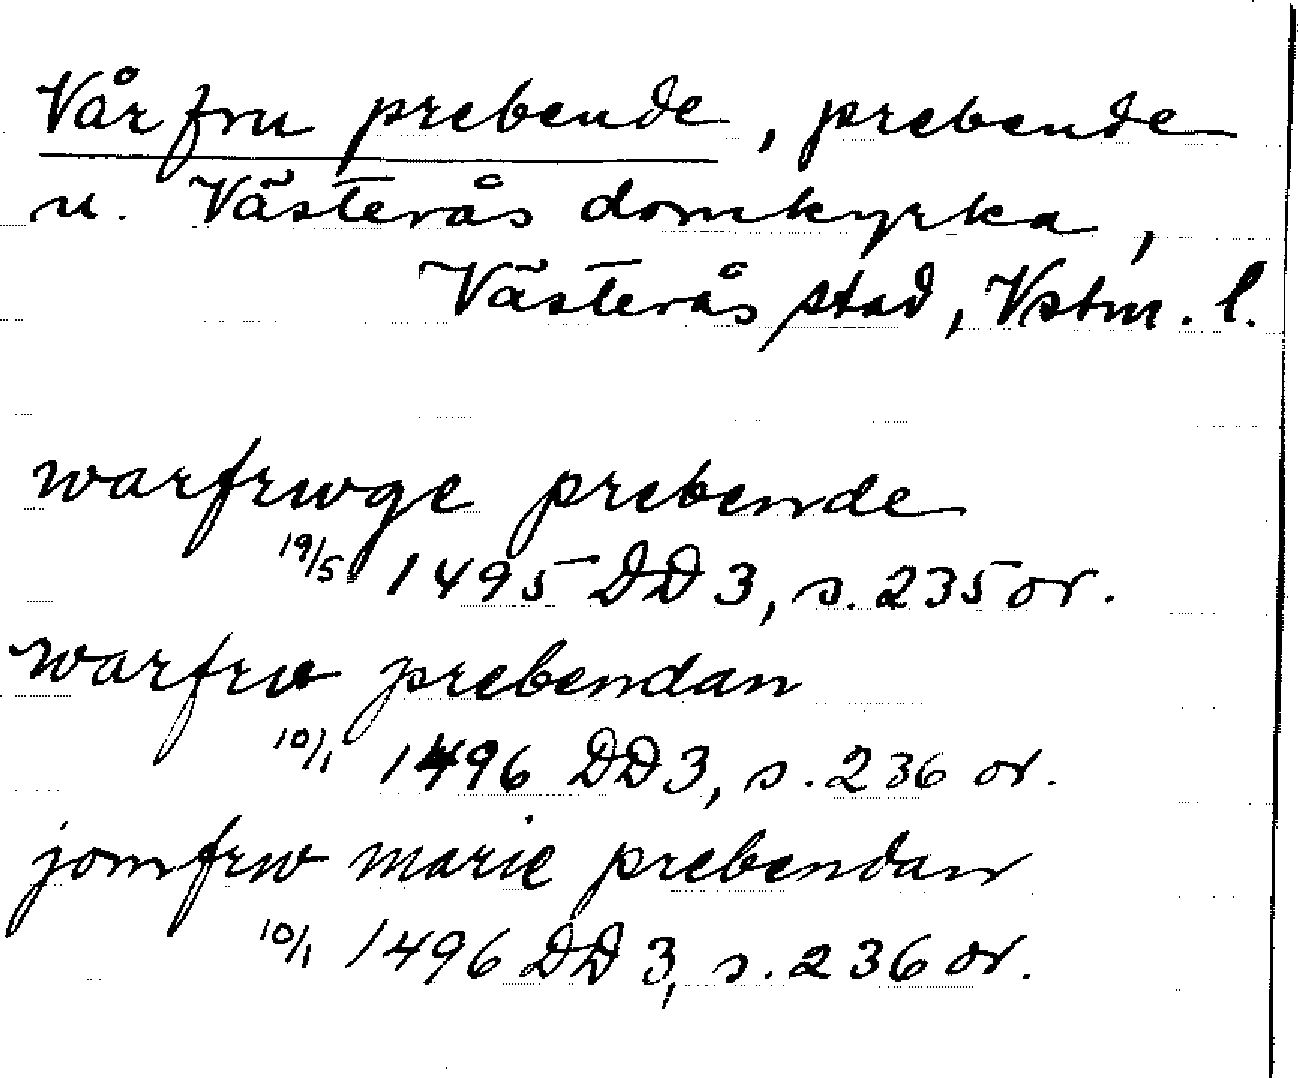 Vårfru prebende, prebende
u. Västerås domkyrka,
Västerås stad, Vstm. l.
warfrwge prebende
19/5 1495 DD 3, s. 235 or.
warfrw prebendan
10/1 1496 DD 3, s. 236 or.
jomfrw marie prebendan
10/1 1496 DD 3, s. 236 or.